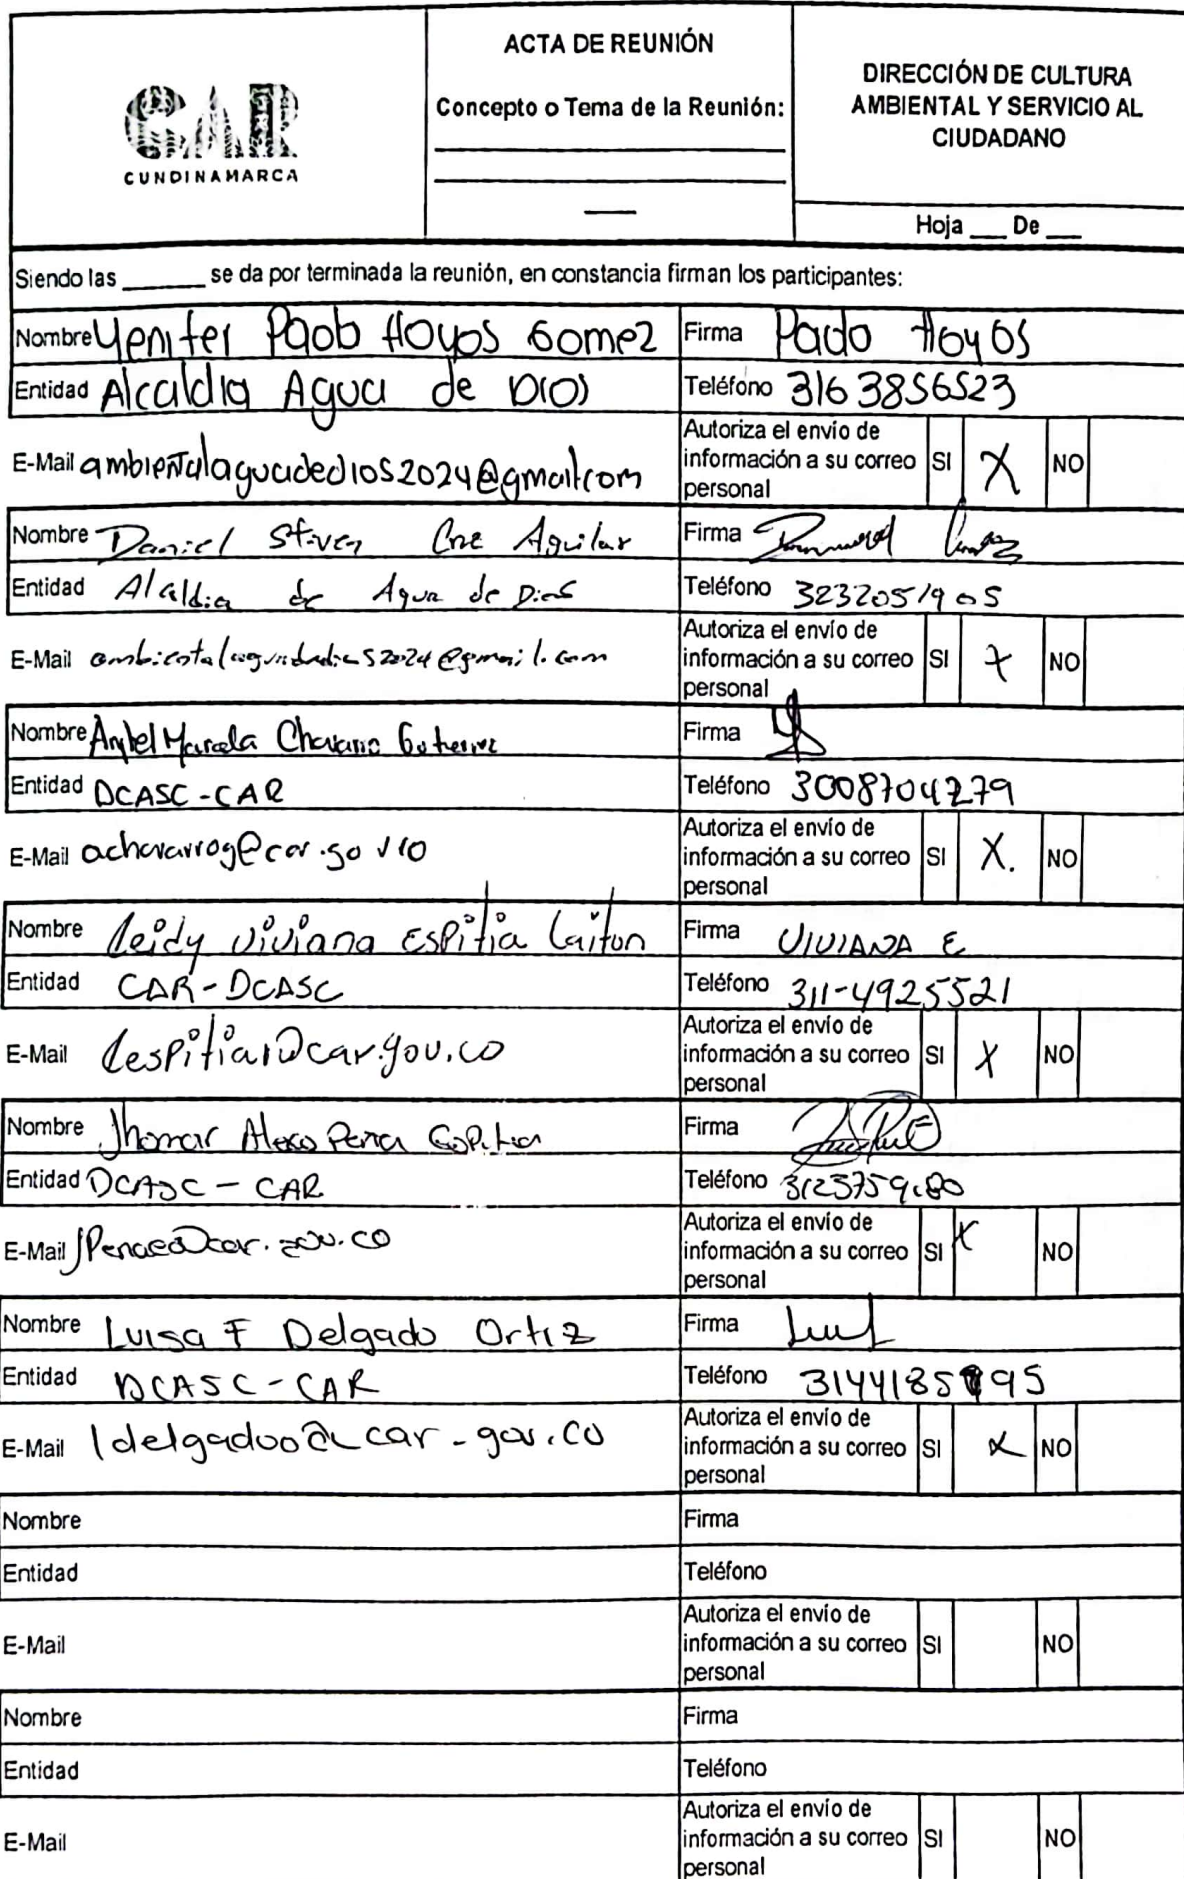 CAR
CUNDINAMARCA
ACTA DE REUNIÓN
Concepto o Tema de la Reunión:
DIRECCIÓN DE CULTURA
AMBIENTAL Y SERVICIO AL
CIUDADANO
Hoja ___ De ___
Siendo las ______ se da por terminada la reunión, en constancia firman los participantes:
Nombre Yenifer Paola Hoyos Gomez
Firma Paola Hoyos
Entidad Alcaldia Agua de Dios
Teléfono 316 3856523
E-Mail ambientalaguadedios2024@gmail.com
Autoriza el envío de
información a su correo SI X NO
personal
Nombre Daniel Stiven Aguilar
Firma
Entidad Alcaldia de Agua de Dios
Teléfono 3232051905
E-Mail ambientalaguadedios2024@gmail.com
Autoriza el envío de
información a su correo SI X NO
personal
Nombre Marcela Chavarro Gutierrez
Firma
Entidad DCASC-CAR
Teléfono 3008704279
E-Mail achavarrog@car.gov.co
Autoriza el envío de
información a su correo SI X. NO
personal
Nombre Leidy Viviana Espitia Laiton
Firma VIVIANA E
Entidad CAR-DCASC
Teléfono 311-4925521
E-Mail lespitial@car.gov.co
Autoriza el envío de
información a su correo SI X NO
personal
Nombre Jhomar Alexo Peña Espitia
Firma
Entidad DCASC - CAR
Teléfono
E-Mail Jpenae@car.gov.co
Autoriza el envío de
información a su correo SI X NO
personal
Nombre Luisa F Delgado Ortiz
Firma
Entidad DCASC-CAR
Teléfono
E-Mail ldelgadoo@car.gov.co
Autoriza el envío de
información a su correo SI X NO
personal
Nombre
Firma
Entidad
Teléfono
E-Mail
Autoriza el envío de
información a su correo SI NO
personal
Nombre
Firma
Entidad
Teléfono
E-Mail
Autoriza el envío de
información a su correo SI NO
personal